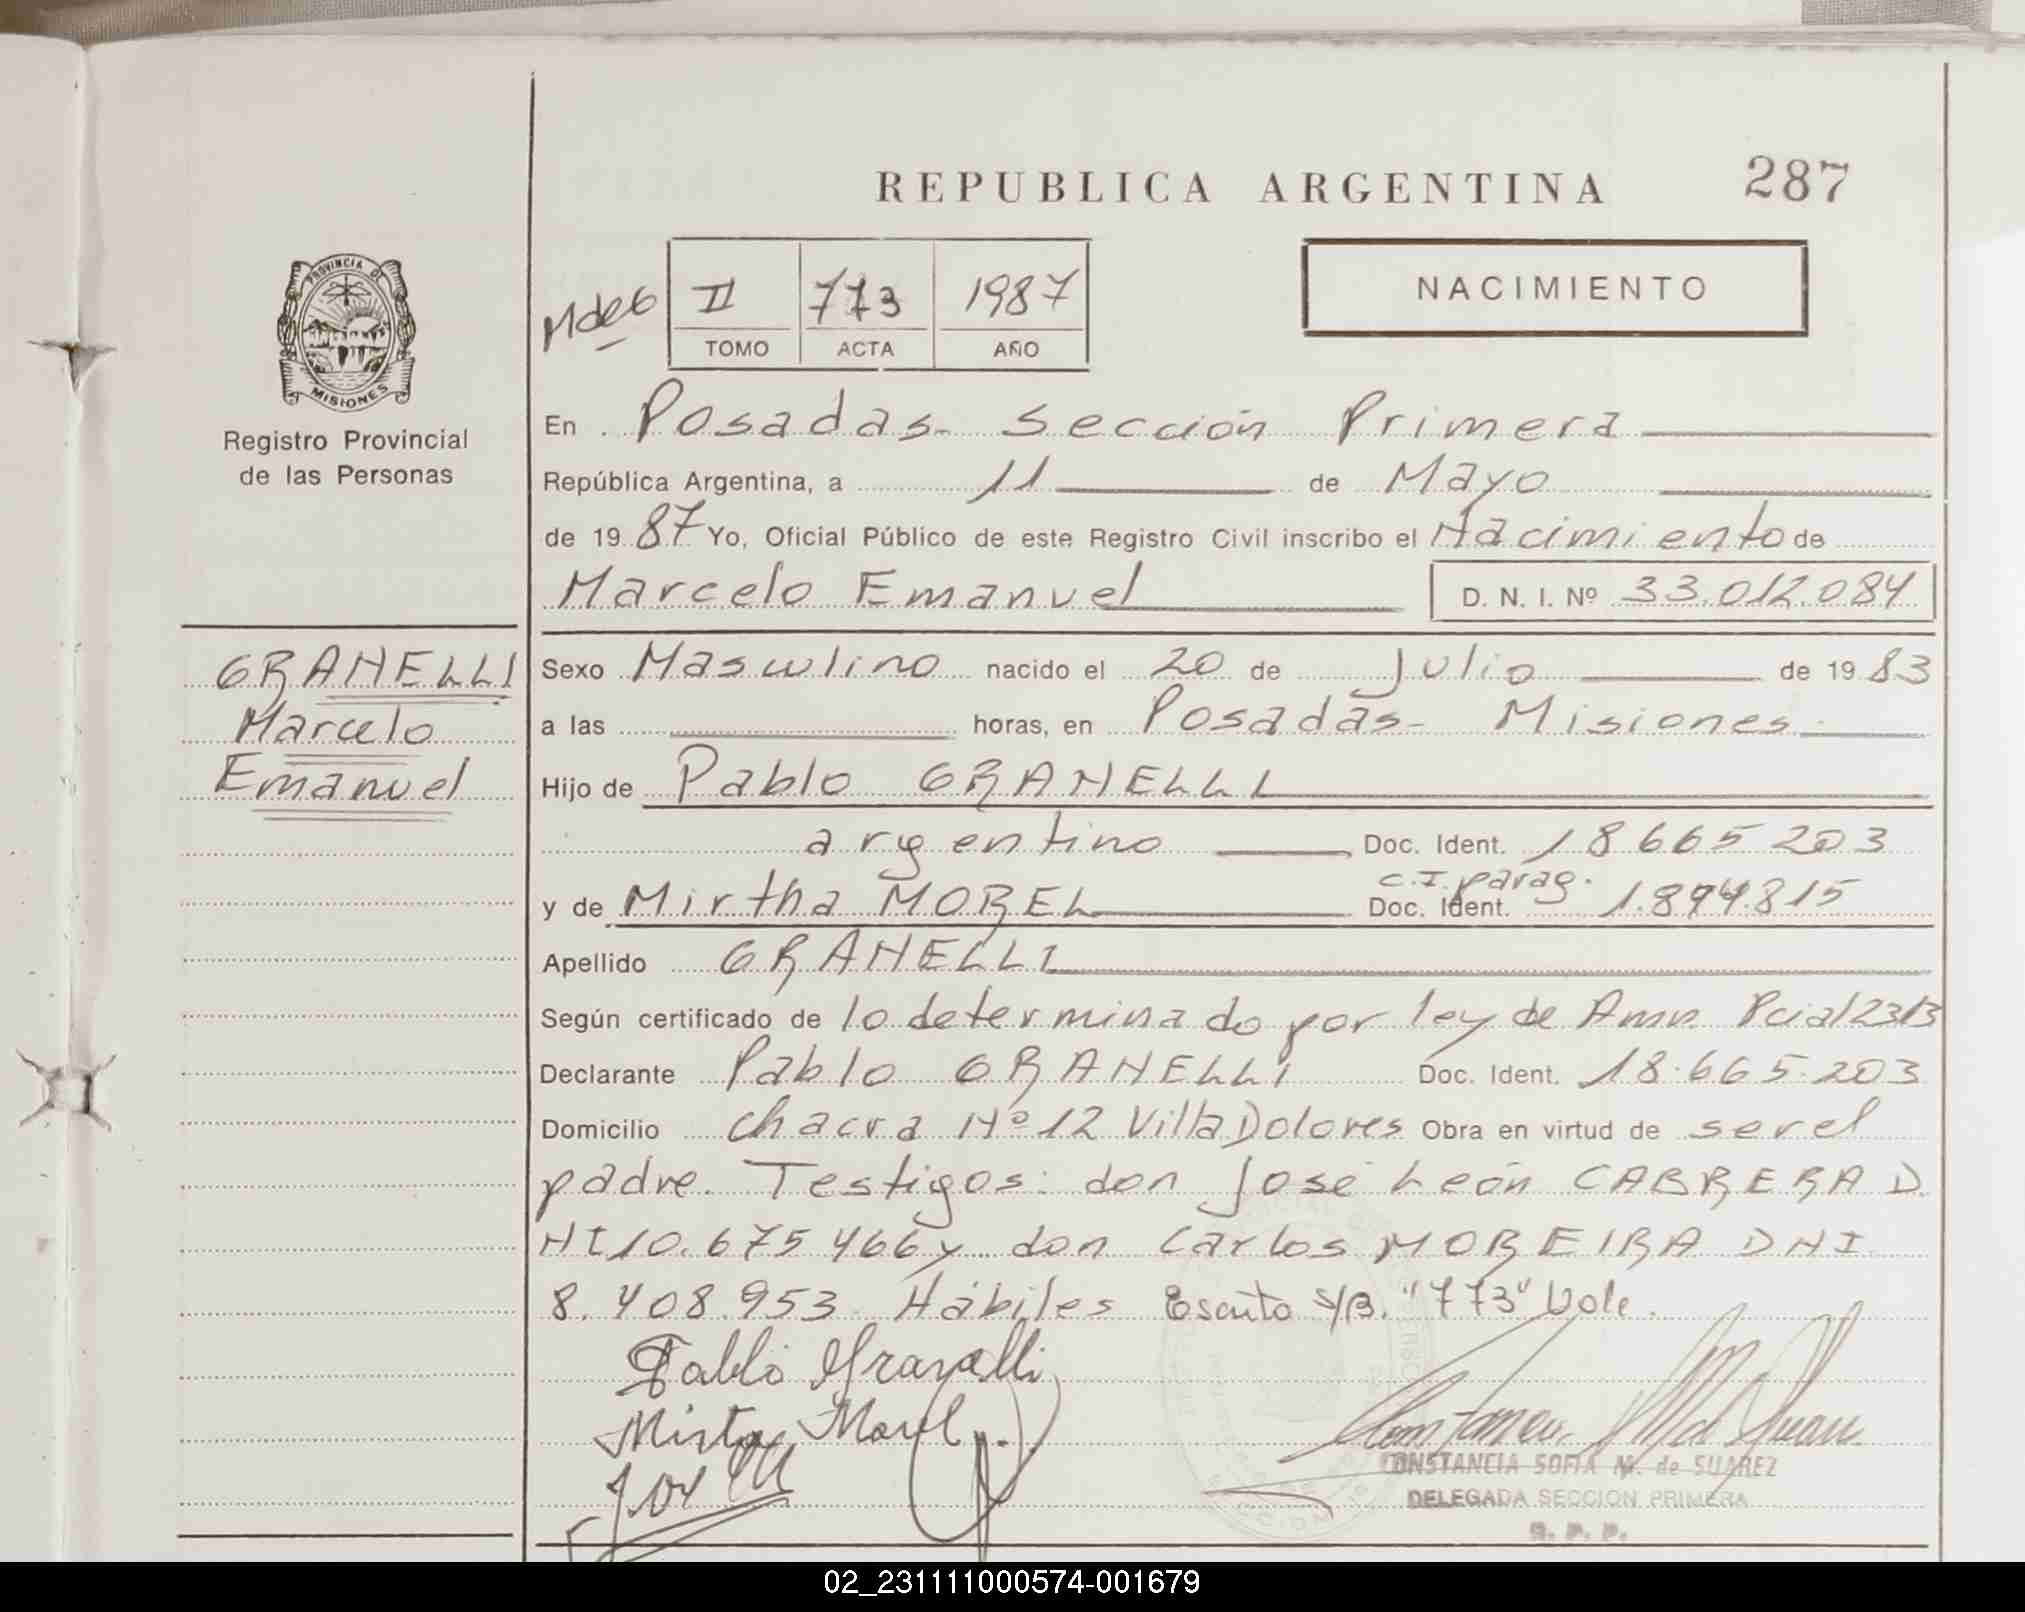 REPUBLICA ARGENTINA
287
II 773 1987
TOMO ACTA AÑO
NACIMIENTO
PROVINCIA DE
MISIONES
Registro Provincial
de las Personas
En Posadas- Sección Primera
República Argentina, a 11 de Mayo
de 1987 Yo, Oficial Público de este Registro Civil inscribo el Nacimiento de
Marcelo Emanuel D. N. I. Nº 33.012.084
GRANELLI
Marcelo
Emanuel
Sexo Masculino nacido el 20 de Julio de 1983
a las horas, en Posadas- Misiones
Hijo de Pablo GRANELLI
argentino Doc. Ident. 18665203
C.I. parag.
y de Mirtha MOREL Doc. Ident. 1.894.815
Apellido GRANELLI
Según certificado de lo determinado por ley de Amn. Pcial 2313
Declarante Pablo GRANELLI Doc. Ident. 18.665.203
Domicilio chacra Nº 12 Villa Dolores Obra en virtud de ser el
padre. Testigos: don José León CABRERA D.
NI 10.675466 y don Carlos MOREIRA DNI
8.408.953 Hábiles Escrito S/B. "773" Vale.
Pablo Granelli
Mirta Morel
CONSTANCIA SOFIA M. de SUAREZ
DELEGADA SECCION PRIMERA
R. P. P.
02_231111000574-001679